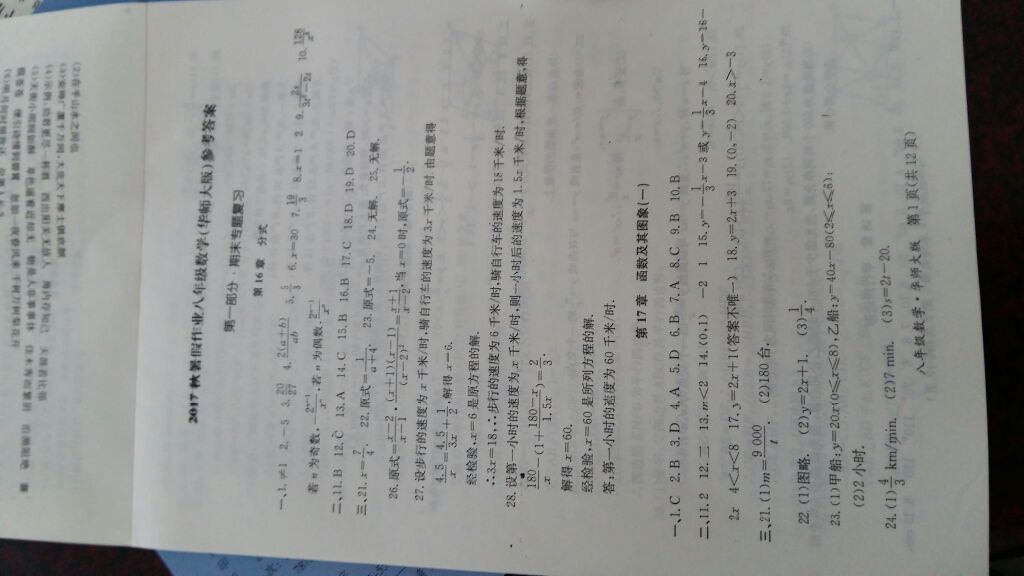 2017秋暑假作业八年级数学(华师大版)参考答案
第一部分·期末专题复习
第16章 分式
一、1.≠1 2.-5 3.20/27 4.2(a+b)/ab 5.5/3 6.x=30 7.19/3 8.x=1 2 9. 10.128/x⁸
若n为奇数,-2ⁿ⁻¹/xⁿ;若n为偶数,2ⁿ⁻¹/xⁿ
二、11.B 12.C 13.A 14.C 15.B 16.B 17.C 18.D 19.D 20.D
三、21.x=7/4. 22.原式=1/(a+4). 23.原式=-5. 24.无解. 25.无解.
26.原式=(x-2)/(x-1)·(x+1)(x-1)/(x-2)²=(x+1)/(x-2),当x=0时,原式=-1/2.
27.设步行的速度为x千米/时,骑自行车的速度为3x千米/时.由题意得
4.5/x=4.5/3x+1/2.解得x=6.
经检验,x=6是原方程的解.
∴3x=18,∴步行的速度为6千米/时,骑自行车的速度为18千米/时.
28.设第一小时的速度为x千米/时,则一小时后的速度为1.5x千米/时,根据题意,得
180/x-(1+(180-x)/1.5x)=2/3.
解得x=60.
经检验,x=60是所列方程的解.
答:第一小时的速度为60千米/时.
第17章 函数及其图象(一)
一、1.C 2.B 3.D 4.A 5.D 6.B 7.A 8.C 9.B 10.B
二、11.2 12.三 13.m<2 14.(0,1) -2 1 15.y=-1/3x-3或y=-1/3x-4 16.y=16-
2x 4<x<8 17.y=2x+1(答案不唯一) 18.y=2x+3 19.(0,-2) 20.x>-3
三、21.(1)m=9 000/t. (2)180台.
22.(1)图略. (2)y=2x+1. (3)1/4.
23.(1)甲船:y=20x(0≤x≤8),乙船:y=40x-80(2≤x≤6);
(2)2小时.
24.(1)4/3 km/min. (2)7 min. (3)s=2t-20.
八年级数学·华师大版 第1页(共12页)